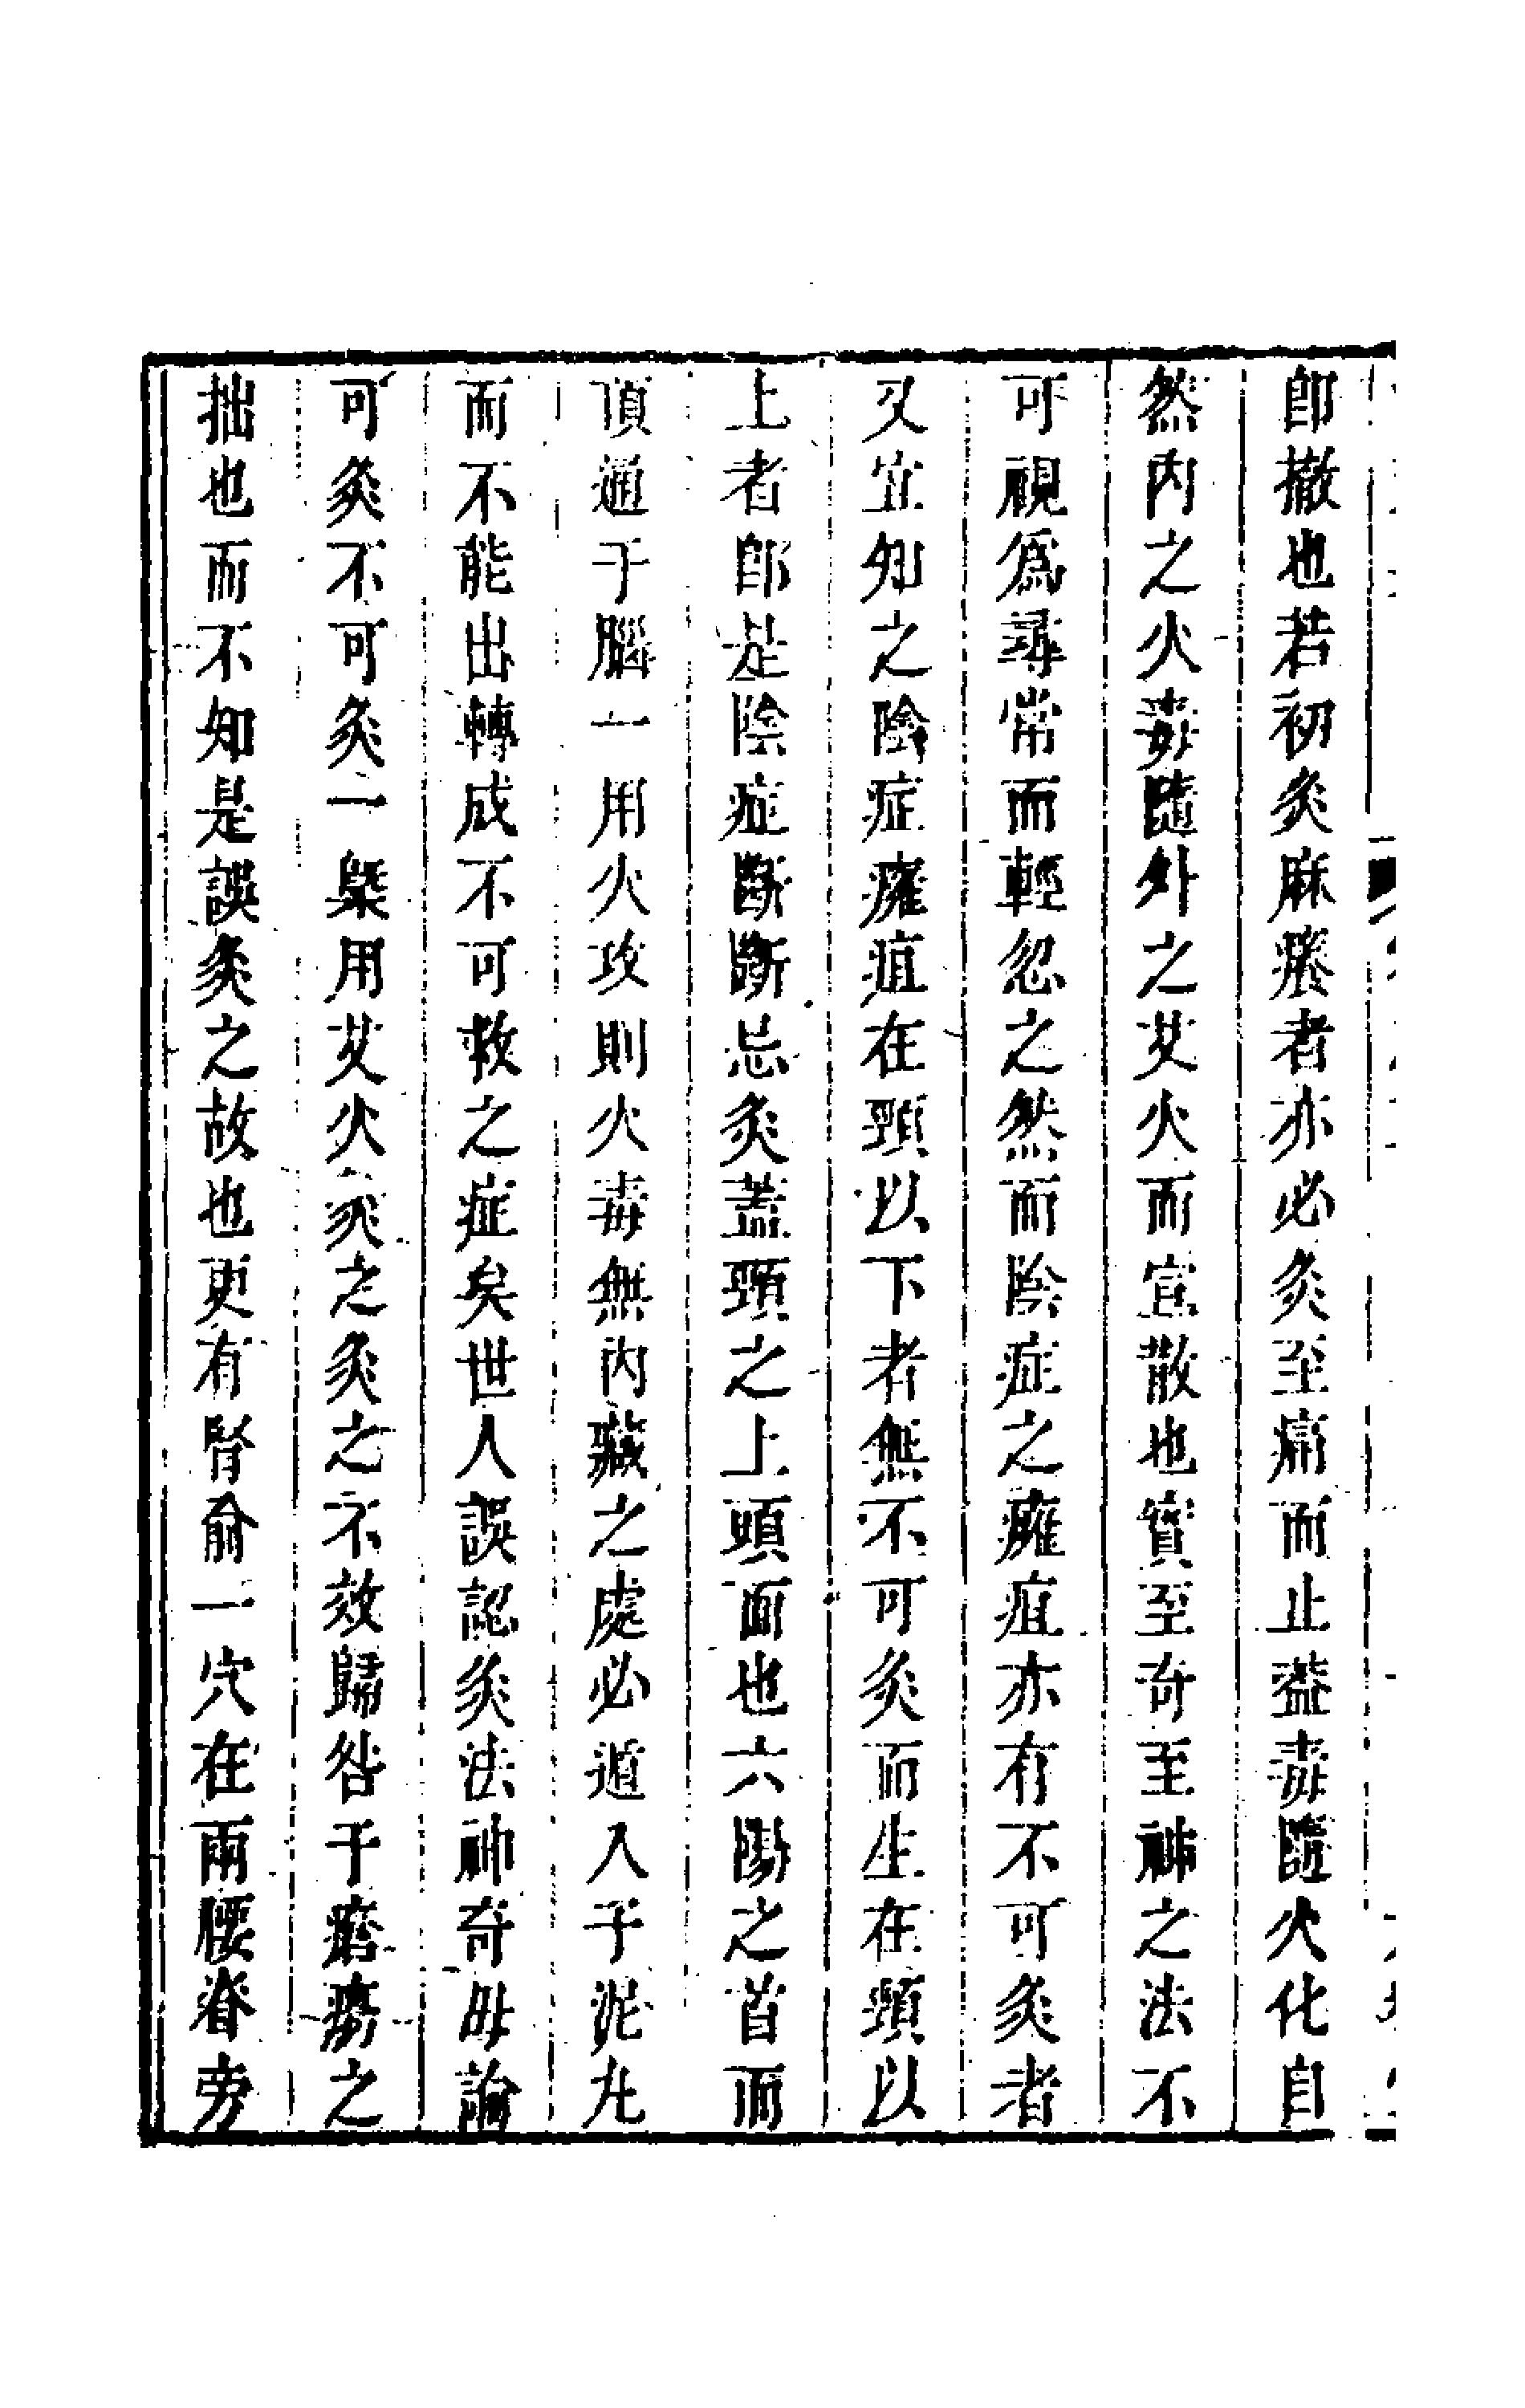 即撤也若初灸麻癢者亦必灸至痛而止蓋毒隨火化自
然内之火毒隨外之艾火而宣散也實至奇至神之法不
可視爲尋常而輕忽之然而陰症之癰疽亦有不可灸者
又宜知之陰症癰疽在頸以下者無不可灸而生在頸以
上者即是陰症斷斷忌灸蓋頸之上頭面也六陽之首而
頂通于腦一用火攻則火毒無内藏之處必遁入于泥丸
而不能出轉成不可救之症矣世人誤認灸法神奇毋論
可灸不可灸一槩用艾火灸之灸之不效歸咎于瘡瘍之
拙也而不知是誤灸之故也更有腎俞一穴在兩腰脊旁